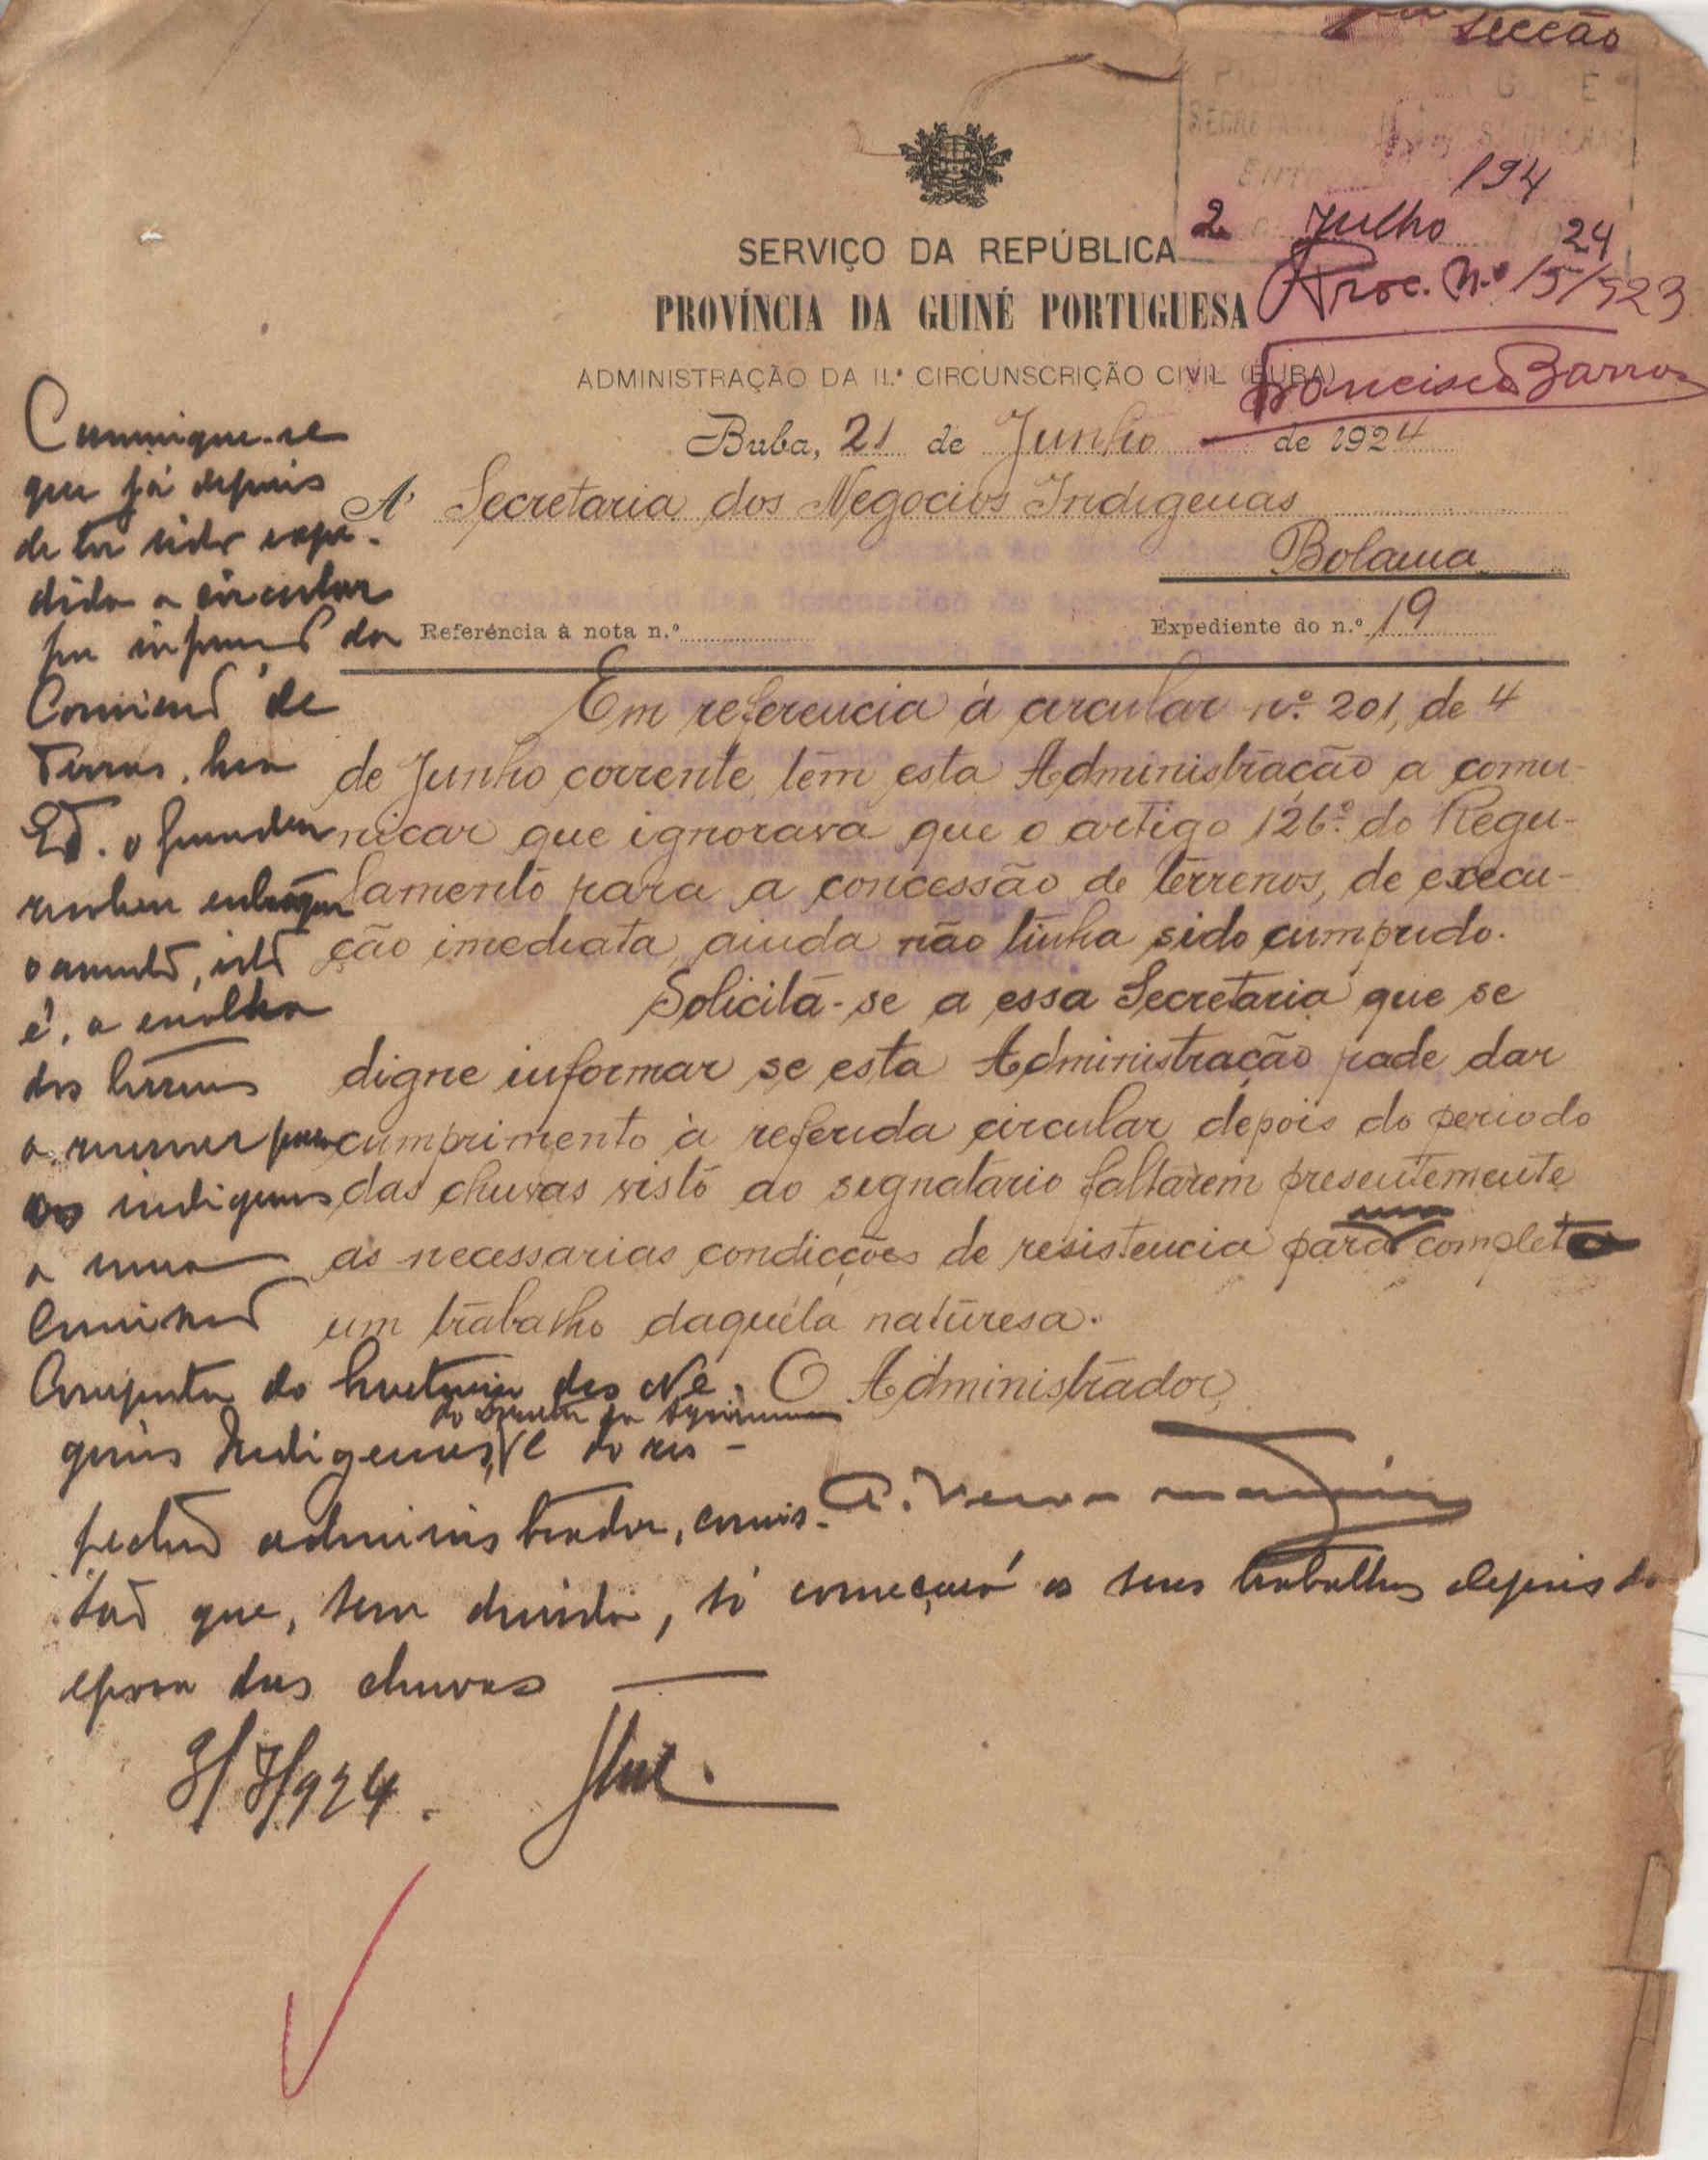 secção
194
2 Julho 24
Proc. N.º 15/923
Francisco Barros
SERVIÇO DA REPÚBLICA
PROVÍNCIA DA GUINÉ PORTUGUESA
ADMINISTRAÇÃO DA 11.ª CIRCUNSCRIÇÃO CIVIL (BUBA)
Buba, 21 de Junho de 1924
A' Secretaria dos Negocios Indigenas
Bolama
Referéncia à nota n.º
Expediente do n.º 19
Em referencia á circular nº. 201, de 4
de Junho corrente tem esta Administração a comu-
nicar que ignorava que o artigo 126º. do Regu-
lamento para a concessão de terrenos, de execu-
ção imediata, ainda não tinha sido cumprido.
Solicita-se a essa Secretaria que se
digne informar se esta Administração pode dar
cumprimento à referida circular depois do periodo
das chuvas visto ao signatario faltarem presentemente
as necessarias condicções de resistencia para um completo
um trabalho daquela naturesa.
O Administrador,
Comunique-se
que já depois
de ter sido expe-
dida a circular
por informação da
Comissão de
Terras, Sua
Exª. o Governador
resolveu entregar
o assunto, isto
é, a escolha
dos terrenos
a reservar para
os indigenas
a uma
Comissão
Composta do Secretario dos Ne-
gocios Indigenas, e do res-
pectivo administrador, comis-
são que, sem duvida, só começará os seus trabalhos depois da
epoca das chuvas
3/7/924.